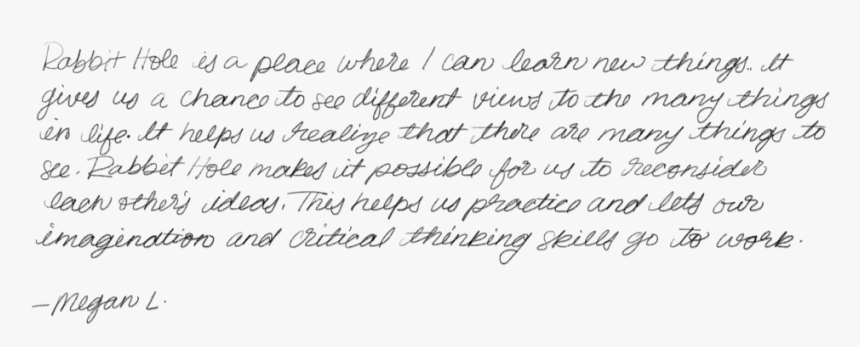 Rabbit Hole is a place where I can learn new things. It
gives us a chance to see different views to the many things
in life. It helps us realize that there are many things to
see. Rabbit Hole makes it possible for us to reconsider
each other's ideas. This helps us practice and lets our
imagination and critical thinking skills go to work.
—Megan L.